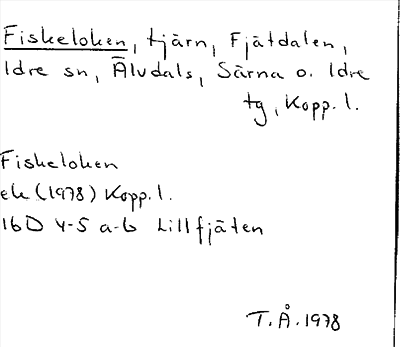 Fiskeloken, tjärn, Fjätdalen,
Idre sn, Älvdals, Särna o. Idre
tg, Kopp. l.
Fiskeloken
ek (1978) Kopp. l.
16D 4-5 a-b Lillfjäten
T.Å. 1978